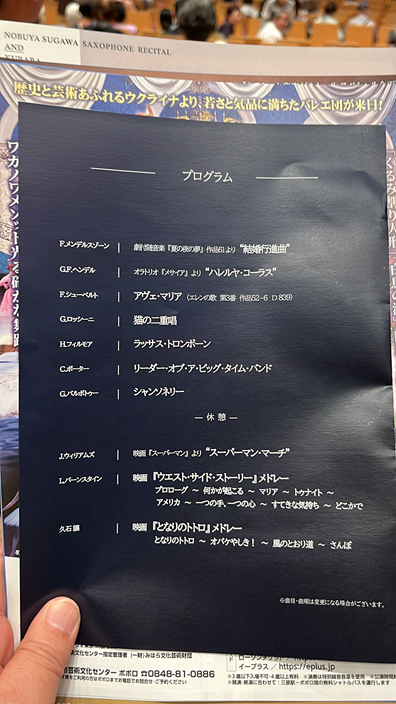 NOBUYA SUGAWA SAXOPHONE RECITAL
AND
歴史と芸術あふれるウクライナより、若さと気品に満ちたバレエ団が来日!
プログラム
F.メンデルスゾーン | 劇付随音楽『夏の夜の夢』作品61より “結婚行進曲”
G.F.ヘンデル | オラトリオ『メサイア』より “ハレルヤ・コーラス”
F.シューベルト | アヴェ・マリア (エレンの歌 第3番 作品52-6 D.839)
G.ロッシーニ | 猫の二重唱
H.フィルモア | ラッサス・トロンボーン
C.ポーター | リーダー・オブ・ア・ビッグ・タイム・バンド
G.バルボトゥー | シャンソネリー
― 休 憩 ―
J.ウィリアムズ | 映画『スーパーマン』より “スーパーマン・マーチ”
L.バーンスタイン | 映画『ウエスト・サイド・ストーリー』メドレー
プロローグ ～ 何かが起こる ～ マリア ～ トゥナイト ～
アメリカ ～ 一つの手、一つの心 ～ すてきな気持ち ～ どこかで
久石 譲 | 映画『となりのトトロ』メドレー
となりのトトロ ～ オバケやしき! ～ 風のとおり道 ～ さんぽ
※曲目・曲順は変更になる場合がございます。
文化センター指定管理者 (一財)みはら文化芸術財団
芸術文化センター ポポロ ☎0848-81-0886
イープラス / https://eplus.jp